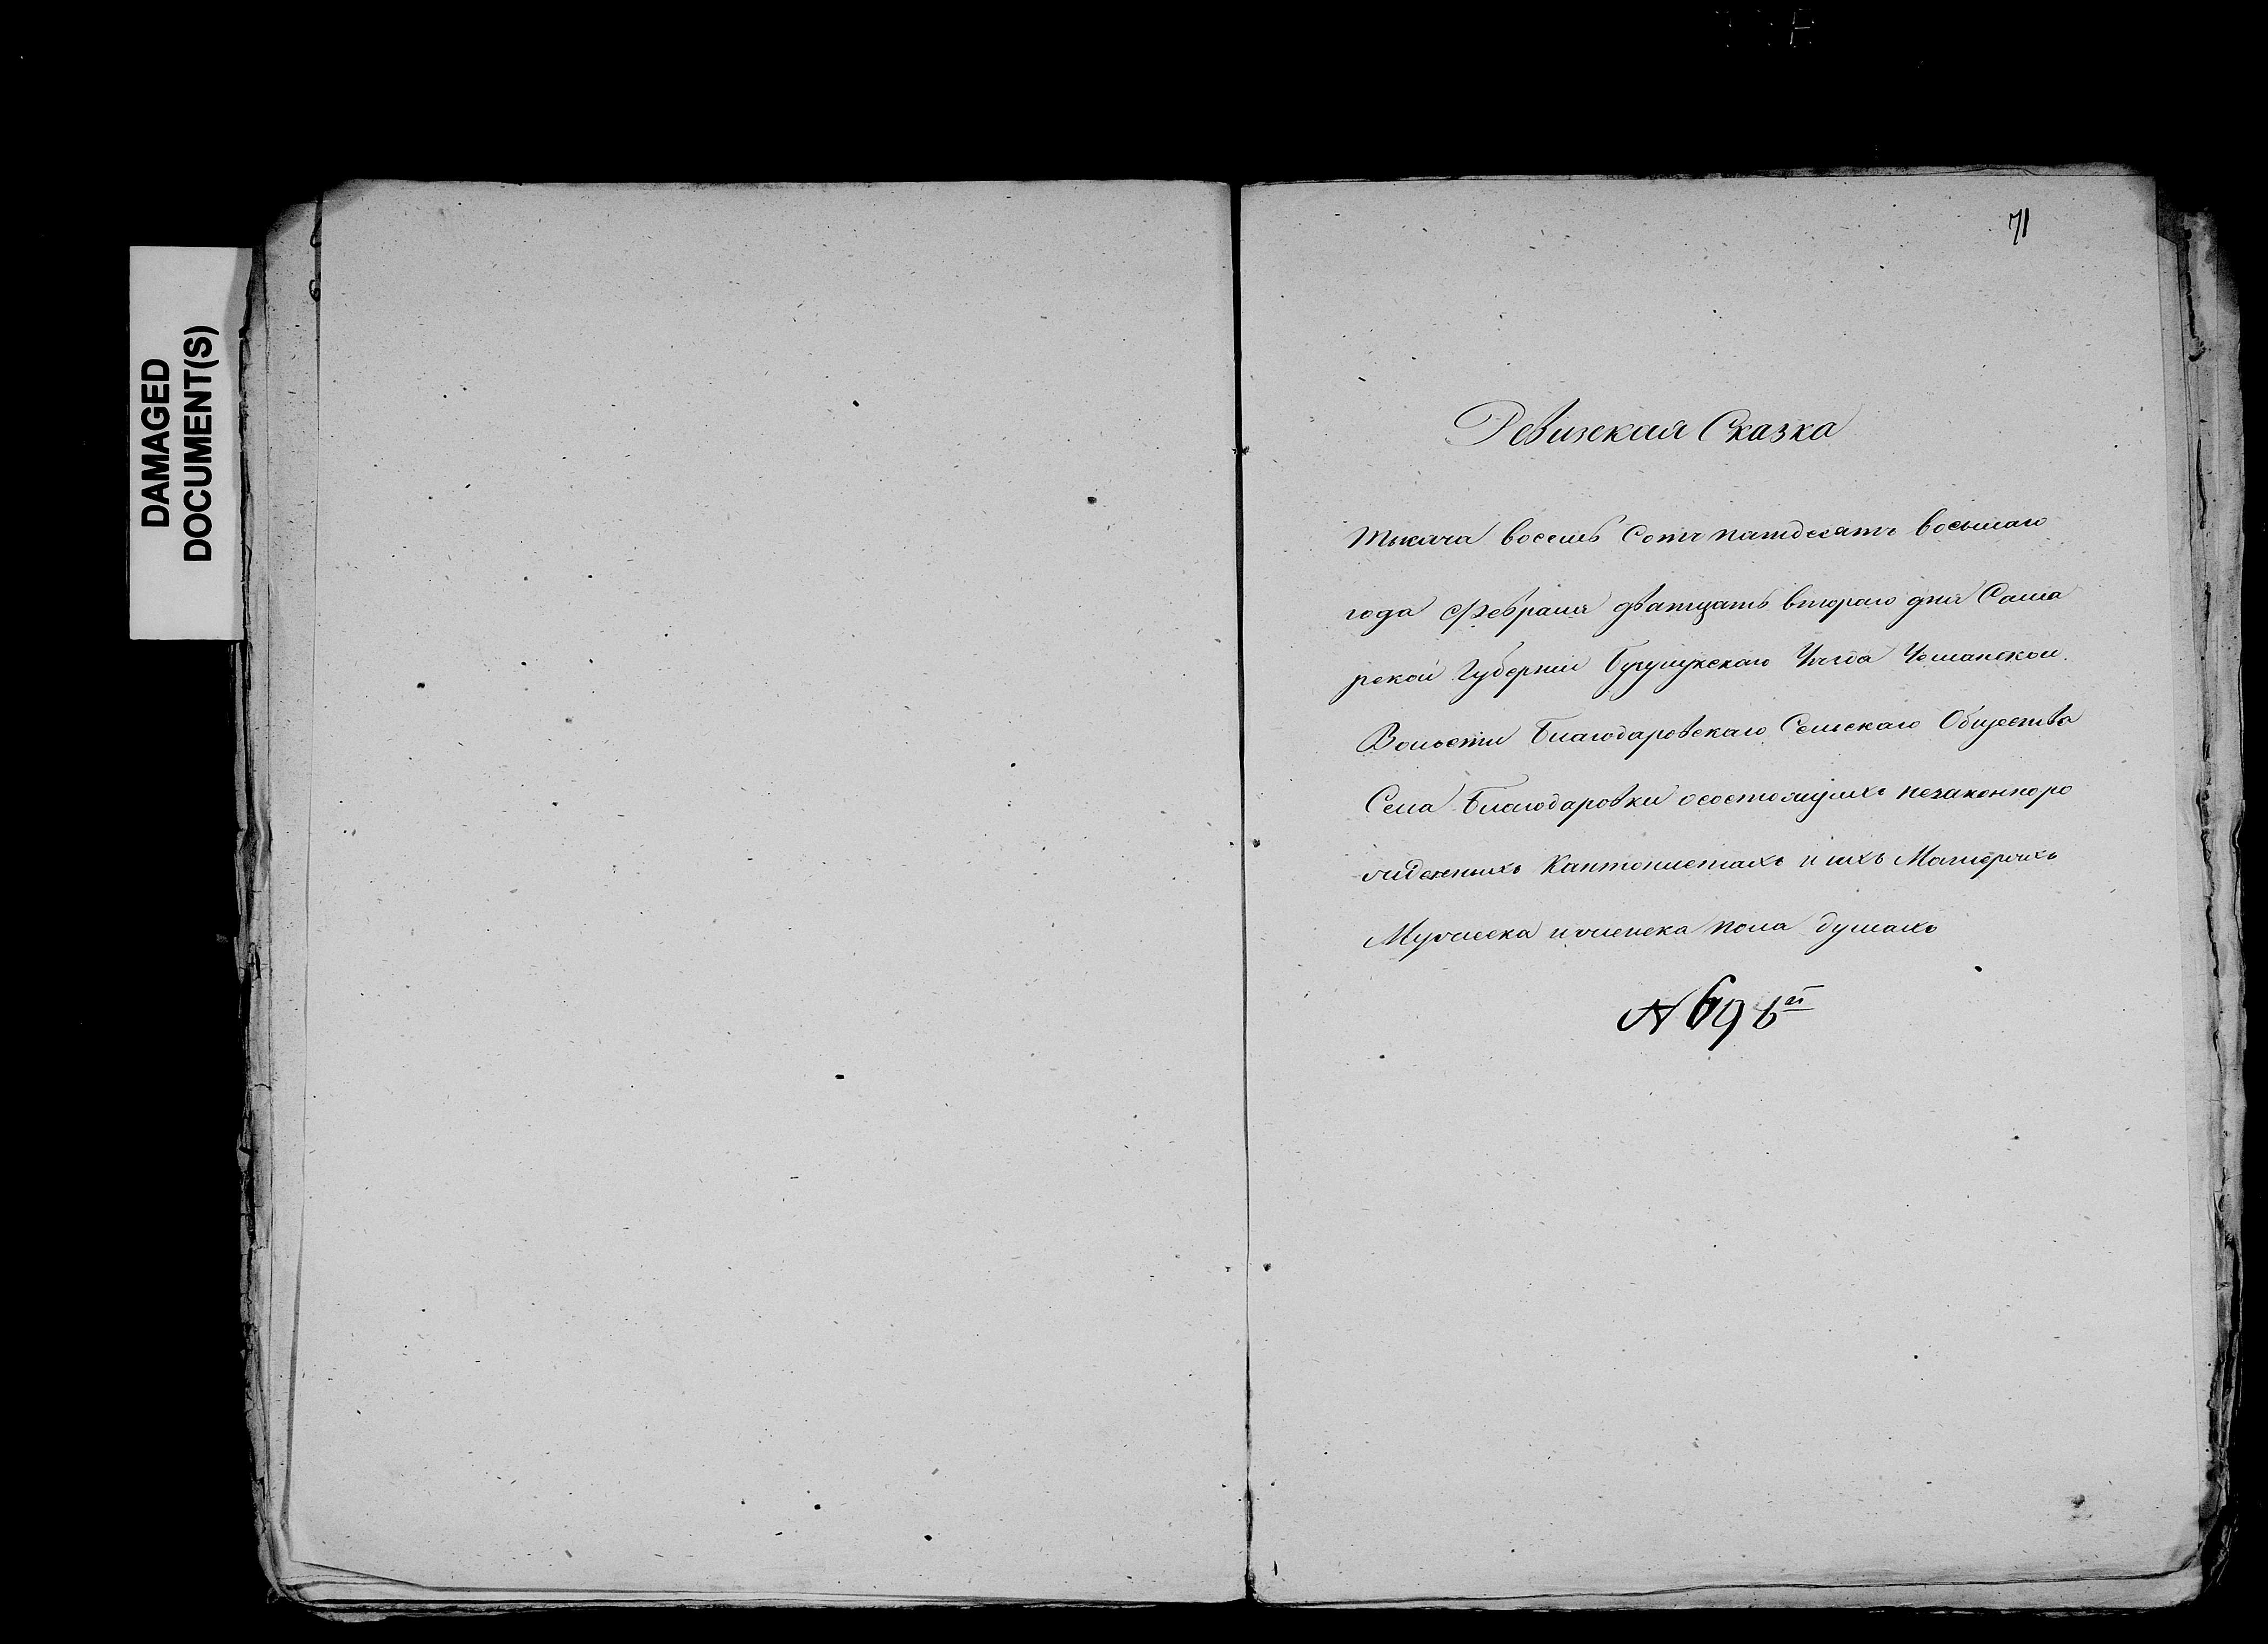 DAMAGED
DOCUMENT(S)
71
Ревизская Сказка
тысяча восемь Сотъ пятдесятъ восьмаго
года Февраля дватцать втораго дня Сама
рской Губерніи Бугурусскаго Уѣзда
Волости Благодаровскаго Сельскаго Общества
Села Благодаровки осостоящихъ незаконноро
жденныхъ Кантонистахъ и ихъ Матеряхъ
Мужеска и женска пола душахъ